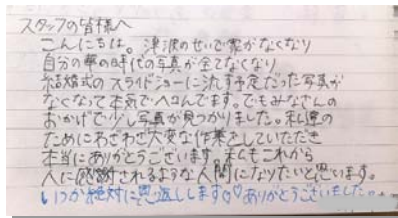 スタッフの皆様へ
こんにちは。津波のせいで家がなくなり
自分の昔の時代の写真が全てなくなり
結婚式のスライドショーに流す予定だった写真が
なくなって本気でヘコんでます。でもみなさんの
おかげで少し写真が見つかりました。私達の
ためにわざわざ大変な作業をしていただき
本当にありがとうございます。私もこれから
人に感謝されるような人間になりたいと思います。
いつか絶対に恩返しします♡♡ありがとうございました。